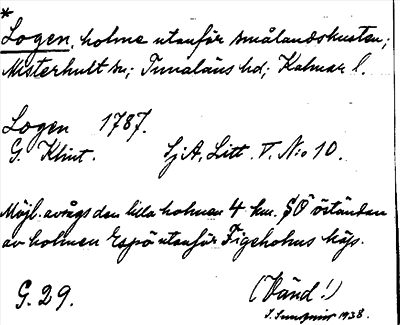 *
Logen, holme utanför smålandskusten;
Misterhult sn; Tunaläns hd; Kalmar l.
Logen 1787.
G. Klint. SjA, Litt. V. N:o 10.
Möjl. avsågs den lilla holmen 4 km. SÖ öständan
av holmen Espö utanför Figeholms käp.
G. 29. (Vänd!)
1938.